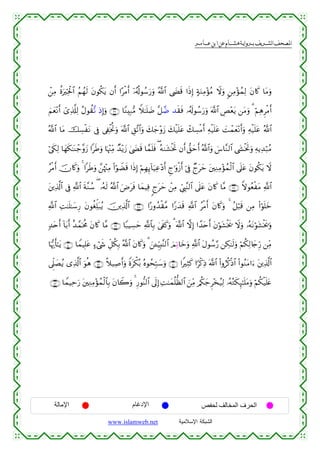 المصحف الشريف برواية هشام عن ابن عامر
وَمَا كَانَ لِمُؤْمِنٖ وَلَا مُؤْمِنَةٍ إِذَا قَضَى ٱللَّهُ وَرَسُولُهُۥٓ أَمْرًا أَن يَكُونَ لَهُمُ ٱلْخِيَرَةُ مِنْ
أَمْرِهِمْۗ وَمَن يَعْصِ ٱللَّهَ وَرَسُولَهُۥ فَقَد ضَّلَّ ضَلَٰلٗا مُّبِينٗا ۝ وَإِذ تَّقُولُ لِلَّذِيٓ أَنْعَمَ
ٱللَّهُ عَلَيْهِ وَأَنْعَمْتَ عَلَيْهِ أَمْسِكْ عَلَيْكَ زَوْجَكَ وَٱتَّقِ ٱللَّهَ وَتُخْفِي فِي نَفْسِكَ مَا ٱللَّهُ
مُبْدِيهِ وَتَخْشَى ٱلنَّاسَ وَٱللَّهُ أَحَقُّ أَن تَخْشَىٰهُۖ فَلَمَّا قَضَىٰ زَيْدٞ مِّنْهَا وَطَرٗا زَوَّجْنَٰكَهَا لِكَيْ
لَا يَكُونَ عَلَى ٱلْمُؤْمِنِينَ حَرَجٞ فِيٓ أَزْوَٰجِ أَدْعِيَآئِهِمْ إِذَا قَضَوْاْ مِنْهُنَّ وَطَرٗاۚ وَكَانَ أَمْرُ
ٱللَّهِ مَفْعُولٗا ۝ مَّا كَانَ عَلَى ٱلنَّبِيِّ مِنْ حَرَجٖ فِيمَا فَرَضَ ٱللَّهُ لَهُۥۖ سُنَّةَ ٱللَّهِ فِي ٱلَّذِينَ
خَلَوْاْ مِن قَبْلُۚ وَكَانَ أَمْرُ ٱللَّهِ قَدَرٗا مَّقْدُورًا ۝ ٱلَّذِينَ يُبَلِّغُونَ رِسَٰلَٰتِ ٱللَّهِ
وَيَخْشَوْنَهُۥ وَلَا يَخْشَوْنَ أَحَدًا إِلَّا ٱللَّهَۗ وَكَفَىٰ بِٱللَّهِ حَسِيبٗا ۝ مَّا كَانَ مُحَمَّدٌ أَبَآ أَحَدٖ
مِّن رِّجَالِكُمْ وَلَٰكِن رَّسُولَ ٱللَّهِ وَخَاتِمَ ٱلنَّبِيِّـۧنَۗ وَكَانَ ٱللَّهُ بِكُلِّ شَيْءٍ عَلِيمٗا ۝ يَٰٓأَيُّهَا
ٱلَّذِينَ ءَامَنُواْ ٱذْكُرُواْ ٱللَّهَ ذِكْرٗا كَثِيرٗا ۝ وَسَبِّحُوهُ بُكْرَةٗ وَأَصِيلًا ۝ هُوَ ٱلَّذِي يُصَلِّي
عَلَيْكُمْ وَمَلَٰٓئِكَتُهُۥ لِيُخْرِجَكُم مِّنَ ٱلظُّلُمَٰتِ إِلَى ٱلنُّورِۚ وَكَانَ بِٱلْمُؤْمِنِينَ رَحِيمٗا ۝
الحرف المخالف لحفص الإدغام الإمالة
الشبكة الإسلامية www.islamweb.net